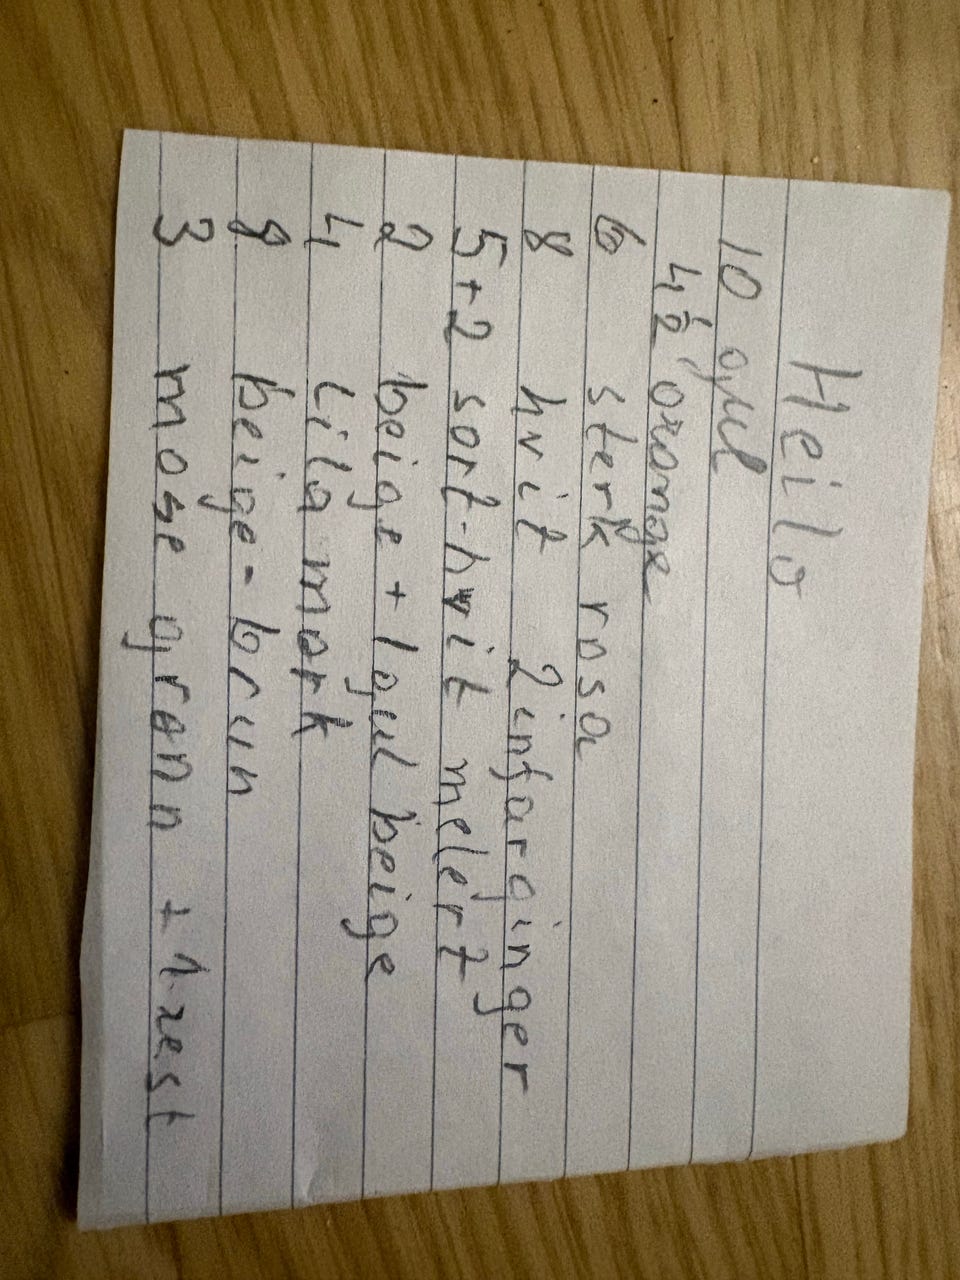 Heilo
10 gul
4 ½ orange
6 sterk rosa
8 hvit 2 infarginger
5+2 sort-hvit melert
2 beige + 1 gul beige
4 lila mørk
8 beige-brun
3 mose grønn + 1 rest